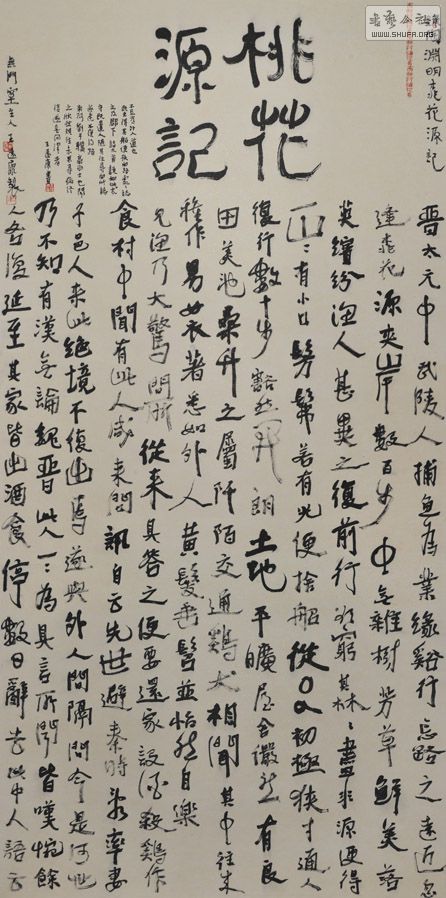 陶淵明桃花源記
桃花
源記
晉太元中武陵人捕魚為業緣谿行忘路之遠近忽
逢桃花源夾岸數百步中無雜樹芳草鮮美落
英繽紛漁人甚異之復前行欲窮其林林盡水源便得
一山山有小口髣髴若有光便捨船從口入初極狹才通人
復行數十步豁然開朗土地平曠屋舍儼然有良
田美池桑竹之屬阡陌交通雞犬相聞其中往來
種作男女衣著悉如外人黃髮垂髫並怡然自樂
見漁乃大驚問所從來具答之便要還家設酒殺雞作
食村中聞有此人咸來問訊自云先世避秦時亂率妻
子邑人來此絕境不復出焉遂與外人間隔問今是何世
乃不知有漢無論魏晉此人一一為具言所聞皆嘆惋餘
人各復延至其家皆出酒食停數日辭去此中人語云
不足為外人道也
WWW.SHUFR.ORG